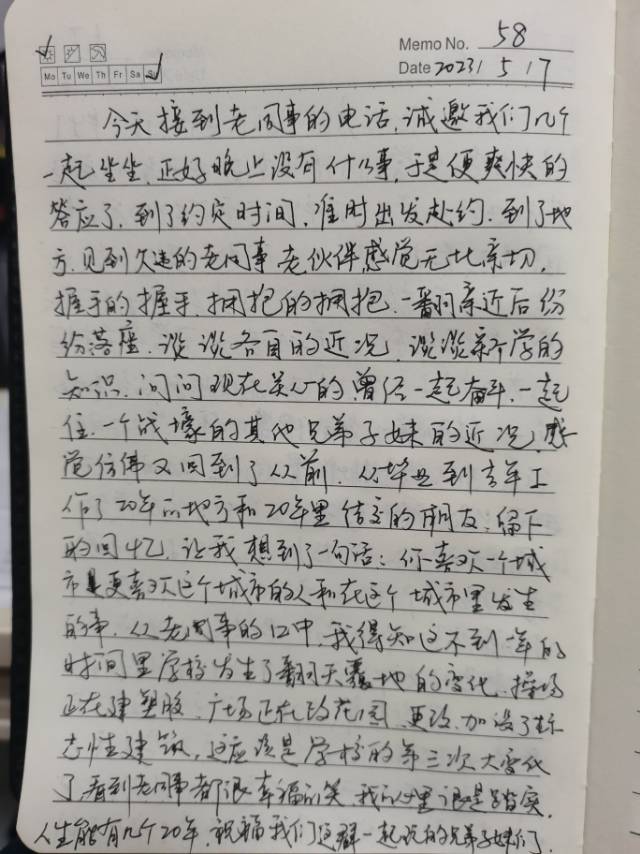 Memo No. 58
Mo Tu We Th Fr Sa Su
Date 2023/ 5 / 7
今天接到老同事的电话,诚邀我们几个
一起坐坐,正好晚上没有什么事,于是便爽快的
答应了,到了约定时间,准时出发赴约.到了地
方,见到久违的老同事老伙伴,感觉无比亲切,
握手的握手,拥抱的拥抱,一翻亲近后纷
纷落座.谈谈各自的近况,谈谈新学的
知识,问问现在关心的曾经一起奋斗,一起
住,一个战壕的其他兄弟子妹的近况,感
觉仿佛又回到了从前.从毕业到去年工
作了20年的地方和20年里结交的朋友,留下
的回忆,让我想到了一句话:你喜欢一个城
市是更喜欢这个城市的人和在这个城市里发生
的事.从老同事的口中,我得知这不到一年的
时间里学校发生了翻天覆地的变化,操场
正在建塑胶,广场正在改花园,更改.加设了标
志性建筑,这应该是学校的第三次大变化
了,看到老同事都很幸福的笑,我的心里很是踏实,
人生能有几个20年,祝福我们这群一起的兄弟子妹们.